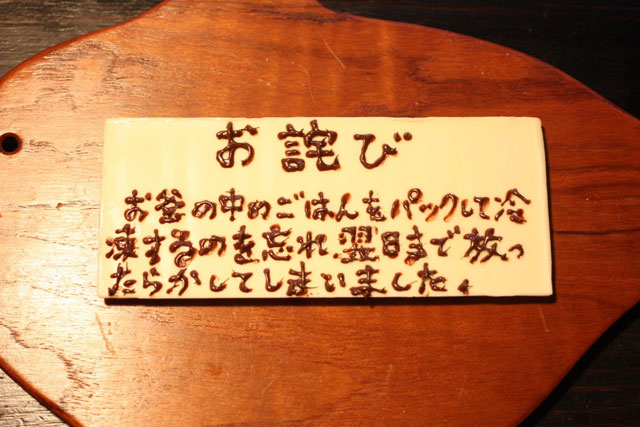 お詫び
お釜の中のごはんをパックして冷
凍するのを忘れ、翌日まで放っ
たらかしてしまいました。